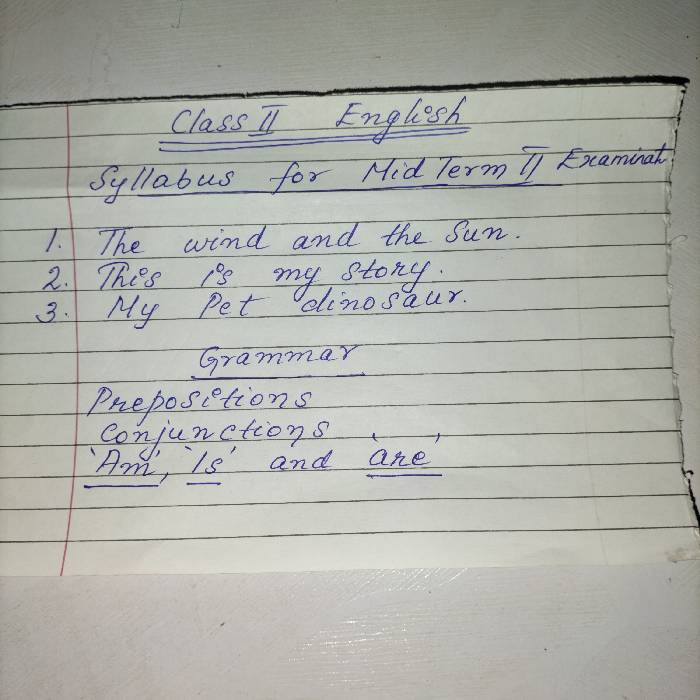 Class II English
Syllabus for Mid Term II Examinat
1. The wind and the Sun.
2. This is my story.
3. My Pet dinosaur.
Grammar
Prepositions
Conjunctions
'Am', 'Is' and 'are'